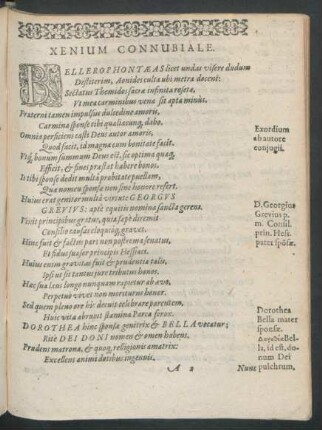 XENIUM CONNUBIALE.
BELLEROPHONTÆAS licet undas visere dudum
Destiterim, Aonides culta ubi metra docent:
Sectatus Themidos sacræ infinita roseta,
Ut mea carminibus vena sit apta minus.
Fraterni tamen impulsus dulcedine amoris,
Carmina sponse tibi qualiacunq, dabo.
Omnia perficiens casti Deus autor amoris,
Quod facit, id magna cum bonitate facit.
Utq, bonum summum Deus est, sic optima quæq,
Efficit, & fines præstat habere bonos.
Is tibi sponse dedit multa probitate puellam,
Qua nomen sponsæ non sine honore refert.
Huius erat genitor multa virtute GEORGIUS
GREVIUS: apte equitis nomina sancta gerens.
Vixit principibus gratus, quia sæpe diremit
Consilio causas cliquiq, graves.
Hinc fuit & factus pars non postrema senatus,
Et fidus suasor principis Hassiaci.
Huius enim gravitas fuit & prudentia talis,
Ipsi ut sit tantus iure tributus honos.
Hac sua laus longo nunquam rapietur ab ævo,
Perpetuo vivet non moriturus honor.
Sed quem pleno ore hic decuit celebrare parentem,
Huic vita abrupit stamina Parca ferox.
DOROTHEA hinc sponsæ genitrix & BELLA vocatur;
Rite DEI DONI nomen & omen habens.
Prudens matrona, & quæq, religionis amatrix:
Excellens animi dotibus ingenuis.
A 2
Nunc
Exordium
ab autore
conjugii.
D. Georgius
Grevius p.
m. Consil.
prin. Hass.
pater spōsæ.
Dorothea
Bella mater
sponsæ.
Bel-
la, id est, do-
num Dei
pulchrum,